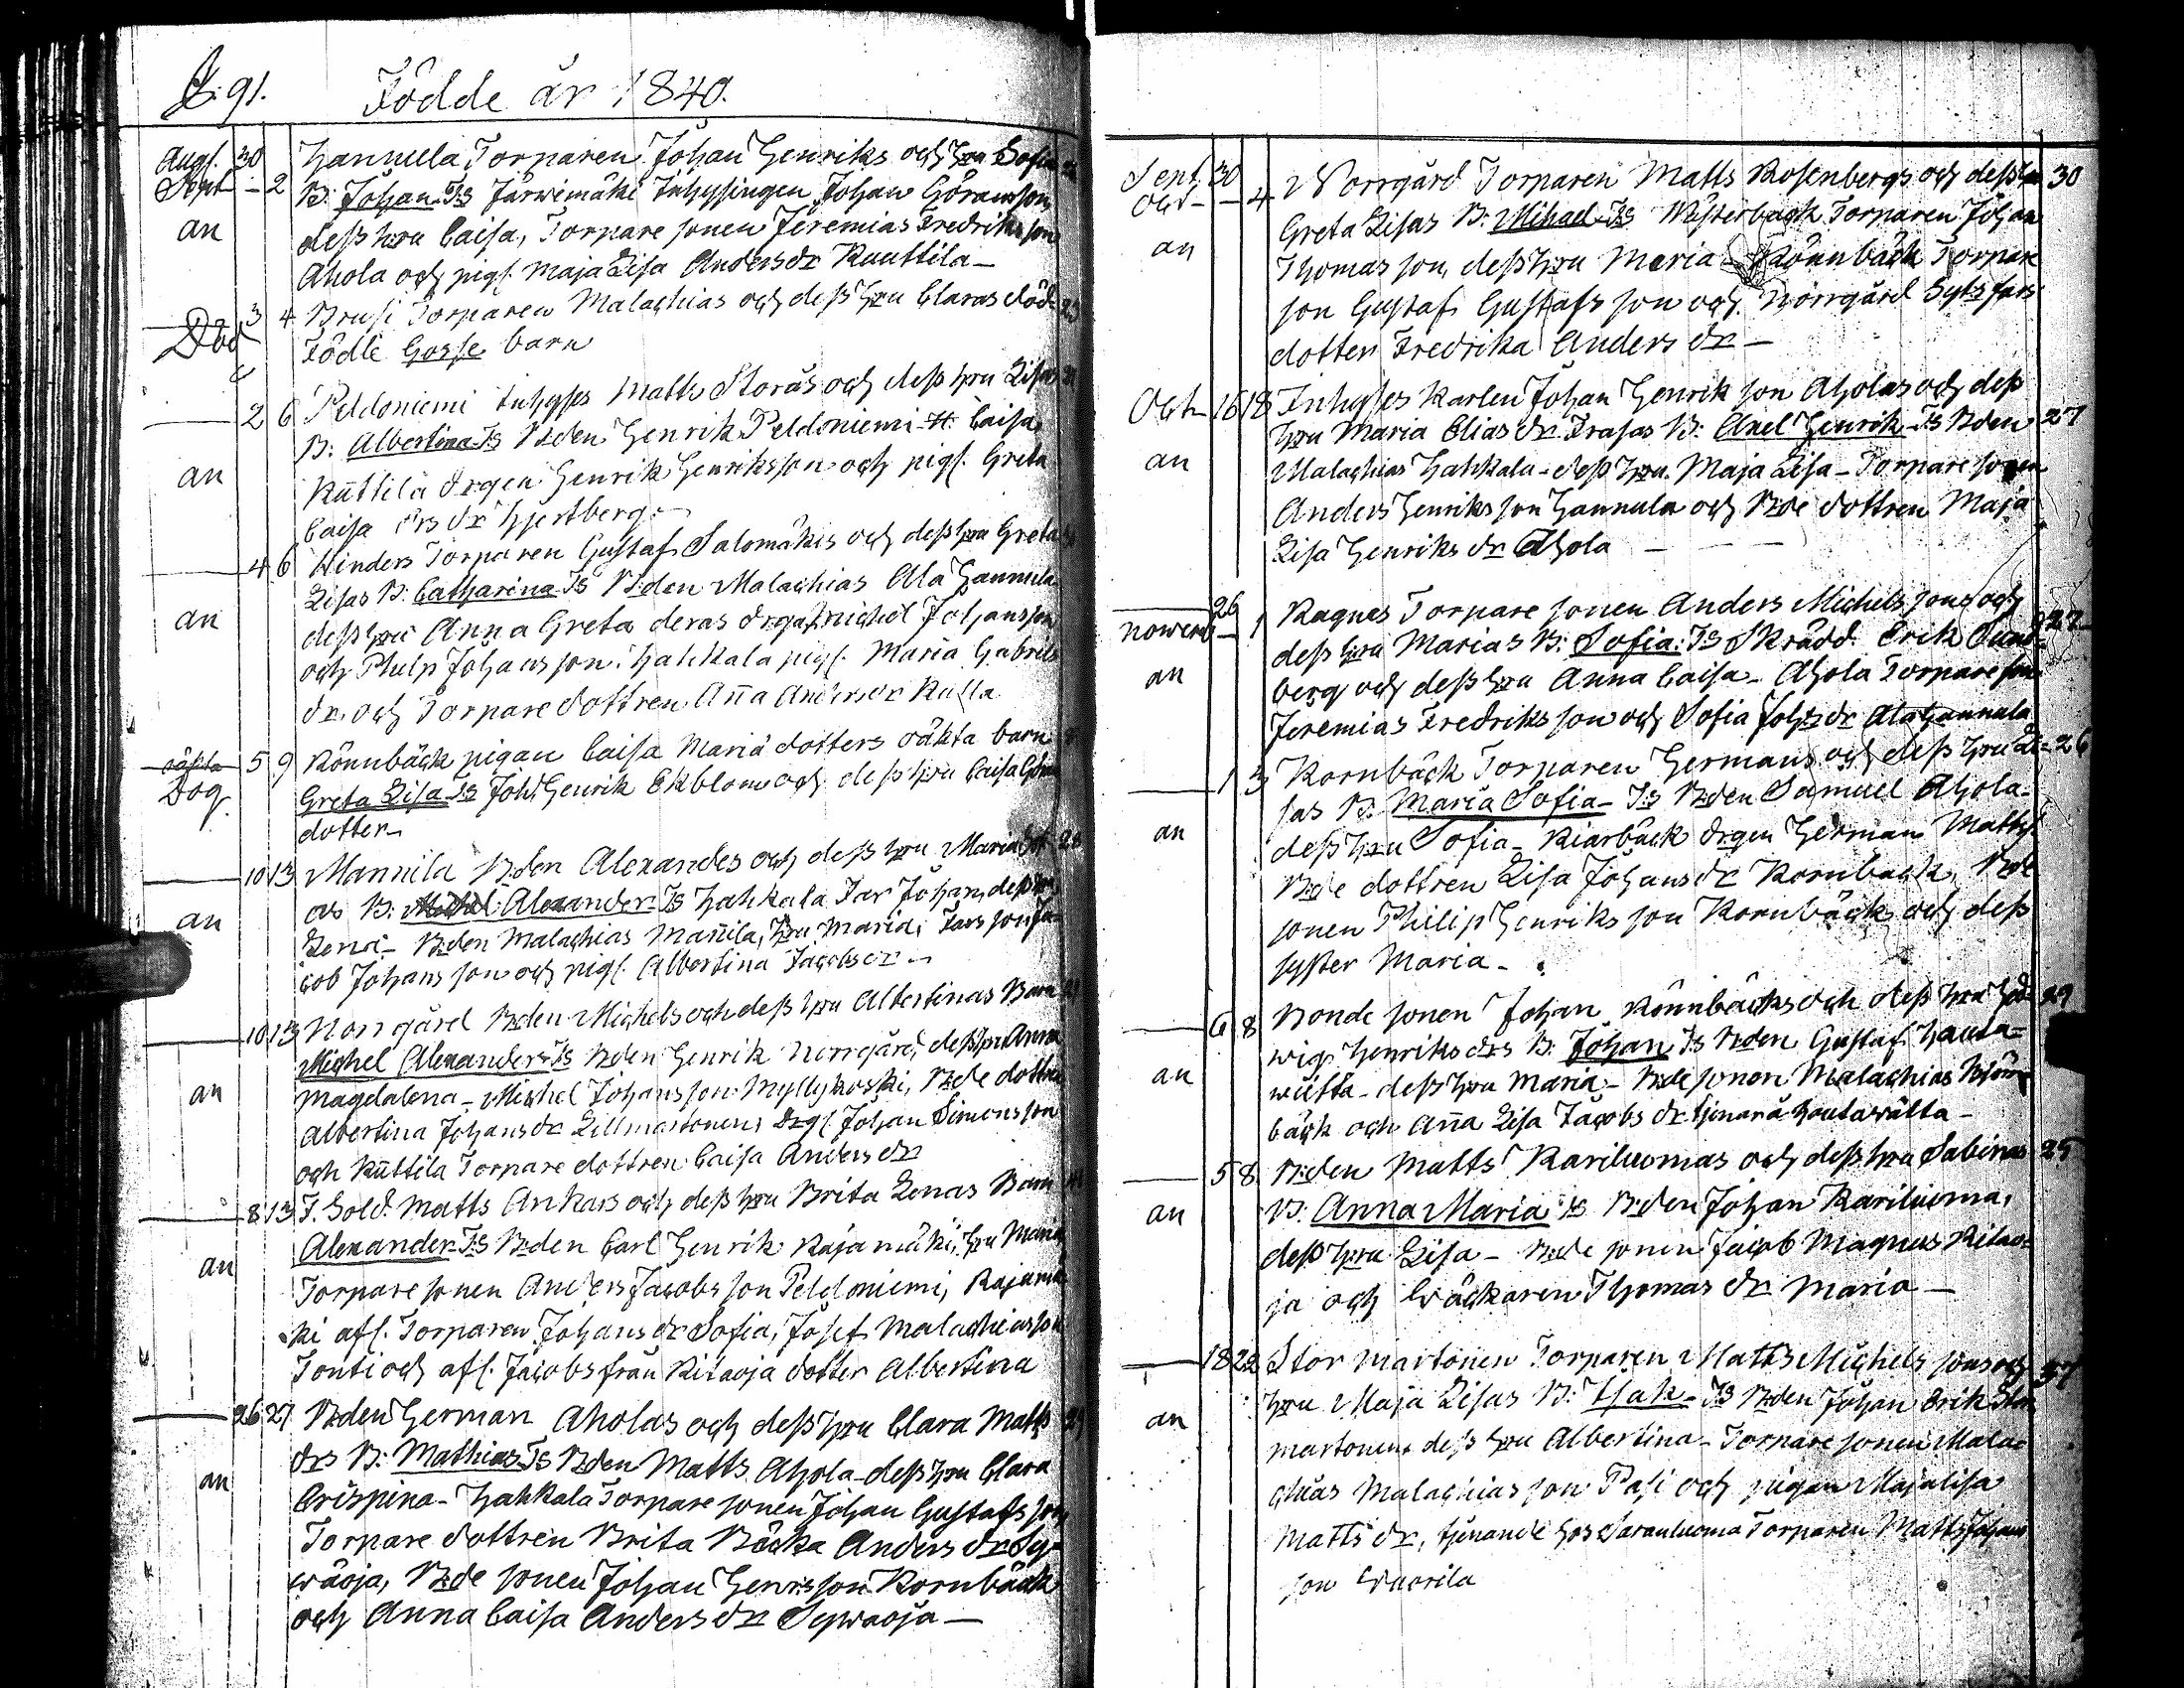 S. 91. Födde år 1840.
Augs. 30 Hannula Torparen Johan Henriks och hru Sofia
Sept - 2 B: Johan Ts Järwimäki Inhysingen Johan Göransson,
an dess hru Caisa, Torpare sonen Jeremias Fredriksson
Ahola och pigs. Maja Lisa Andersdr Ruuttila -
3 4 Brusi Torparen Malachias och dess hru Claras död-
Död födde Gosse barn
2 6 Peldoniemi Inhyses Matts Storås och dess hru Lisas
B: Albertina Ts Bden Henrik Peldoniemi H. Caisa,
an Rūttila drgen Henrik Henriksson och pigs. Greta
Caisa Ersdr Hjertberg -
4 6 Hinders Torparen Gustaf Salomäkis och dess hru Greta
Lisas B: Catharina Ts Bden Malachias Ala Hannula
an dess hru Anna Greta deras drgar Michel Johansson
och Philip Johansson. Hahkala pigs. Maria Gabriels
dr. och Torpare dottren Anna Andersdr Kulla
oäkta 5 9 Rönnbäck pigan Caisa Mariä dotters oäkta barn
Dog Greta Lisa Ts Joh. Henrik Ekblom och dess hru Caisa
dotter
10 13 Mannila Bden Alexandes och dess hru Maria
as B: Alexander Ts Hahkala Far Johan, dess hru
an Lena - Bden Malachias Mañila, hru Maria, Fars son Ja-
cob Johansson och pigs. Albertina Jacobsdr -
10 13 Norrgård Bden Michels och dess hru Albertinas Barn
Michel Alexander Ts Bden Henrik Norrgård, dess hru Anna
an Magdalena - Michel Johansson Myllykoski, Bde dottren
Albertina Johansdr Lillmartonen, Drgs. Johan Simonsson
och Rūttila Torpare dottren Caisa Andersdr
8 13 F. Sold. Matts Ankars och dess hru Brita Lenas Barn
Alexander Ts Bden Carl Henrik Rajamäki, hru Maria
an Torpare sonen Anders Jacobsson Peldoniemi, Rajamä
ki afs. Torparen Johansdr Sofia, Josef Malachiasson
Tonti och afs. Jacobs från Ritaoja dotter Albertina
26 27 Bden Herman Aholas och dess hru Clara Matts 29
drs B: Mathias Ts Bden Matts Ahola dess hru Clara
an Crispina - Hahkala Torpare sonen Johan Gustafsson
Torpare dottren Brita Backa Andersdr Sy-
wäoja, Bde sonen Johan Henrsson Kornbäck
och Anna Caisa Andersdr Sywäoja -
Sept. 30 Norrgård Torparen Matts Rosenbergs och dess hru 30
Oct - 4 Greta Lisas B: Mihael Ts Wästerback Torparen Johan
an Thomasson, dess hru Maria - Rönnbäck Torpare
son Gustaf Gustafsson och Norrgård Sytsfars
dotter Fredrika Andersdr -
Oct 16 18 Inhyses Karlen Johan Henrikson Aholas och dess
hru Maria Eliasdr Frasas B: Axel Henrik Ts Bden 27
an Malachias Hahkala - dess hru Maja Lisa - Torpare sonen
Anders Henriksson Hannula och Bde dottren Maja
Lisa Henriksdr Ahola -
26 Ragnes Torpare sonen Anders Michelssons och
Novemb - 1 dess hru Marias B: Sofia: Ts Skrädd. Erik Sund- 22
an berg och dess hru Anna Caisa - Ahola Torpare son
Jeremias Fredriksson och Sofia Johsdr Alahannula
1 3 Kornbäck Torparen Hermans och dess hru Li- 26
sas B: Maria Sofia - Ts Bden Samuel Ahola -
an dess hru Sofia - Kiarbäck drgen Herman Matts.
Bde dottren Lisa Johansdr Kornback, Bde
sonen Philip Henriksson Kornbäck och dess
syster Maria -
6 8 Bonde sonen Johan Rönnbäcks och dess hru Hed- 29
wig Henriksdrs B: Johan Ts Bden Gustaf Hauta-
an wiitta - dess hru Maria - Bde sonen Malachias Björn-
bäck och Aña Lisa Jacobsdr tjenarå Hautawätta -
5 8 Bden Matts Kariluomas och dess hru Sabinas 25
an B: Anna Maria Ts Bden Johan Kariluoma,
dess hru Lisa - Bde sonen Jacob Magnus Ritao-
ja och Wäckaren Thomasdr Maria -
18 22 Stor Martonen Torparen Matts Michelssons och 37
hru Maja Lisas B: Isak - Ts Bden Johan Erik Stor
an martonen, dess hru Albertina - Torpare sonen Mala-
chias Malachiasson Pasi och pigan Majalisa
Mattsdr, tjenande hos Saranluoma Torparen Matts Johans
son Wuorila